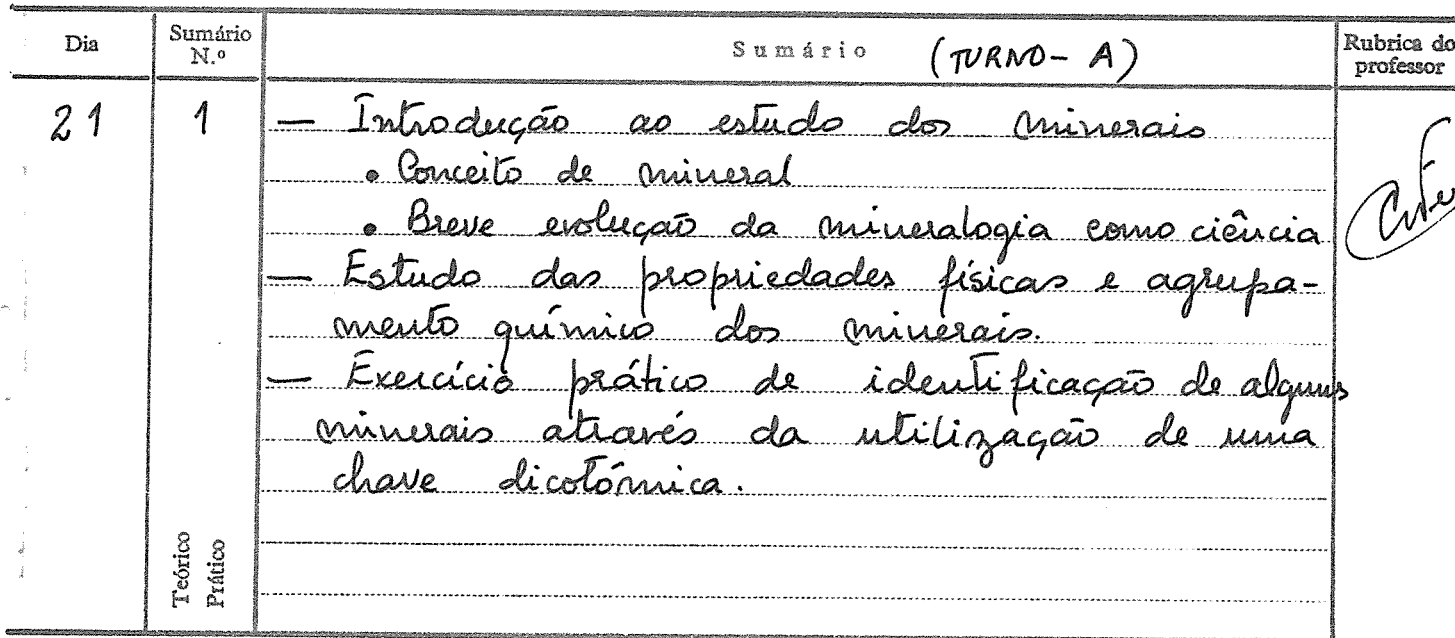 Dia Sumário N.º Sumário (TURNO- A) Rubrica do professor
21 1 — Introdução ao estudo dos minerais
• Conceito de mineral
• Breve evolução da mineralogia como ciência
— Estudo das propriedades físicas e agrupa-
mento químico dos minerais.
— Exercício prático de identificação de alguns
minerais através da utilização de uma
chave dicotómica.
Teórico
Prático